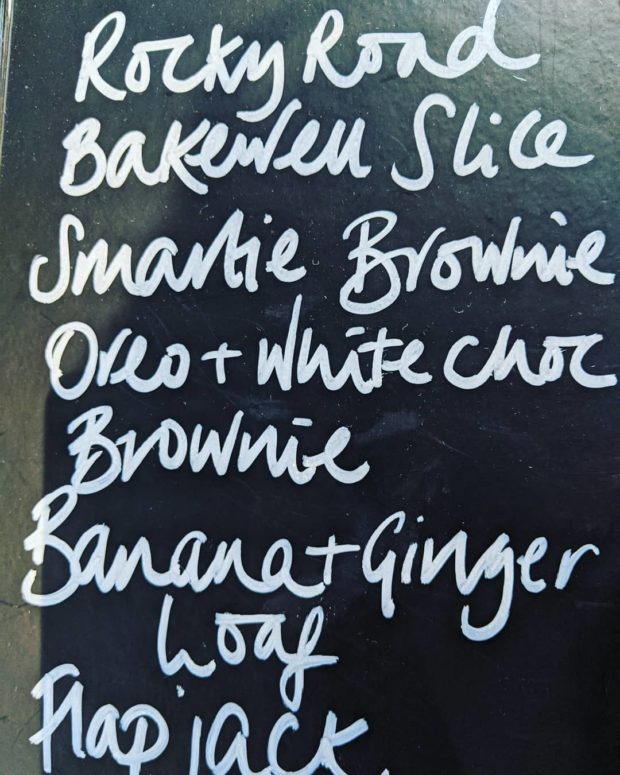 Rocky Road
Bakewell Slice
Smartie Brownie
Oreo + White Choc
Brownie
Banana + Ginger
Loaf
Flapjack